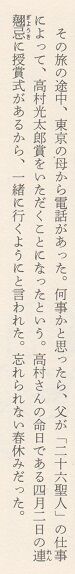 その旅の途中、東京の母から電話があった。何事かと思ったら、父が「二十六聖人」の仕事
によって、高村光太郎賞をいただくことになったという。高村さんの命日である四月二日の連
翹忌に授賞式があるから、一緒に行くようにと言われた。忘れられない春休みだった。